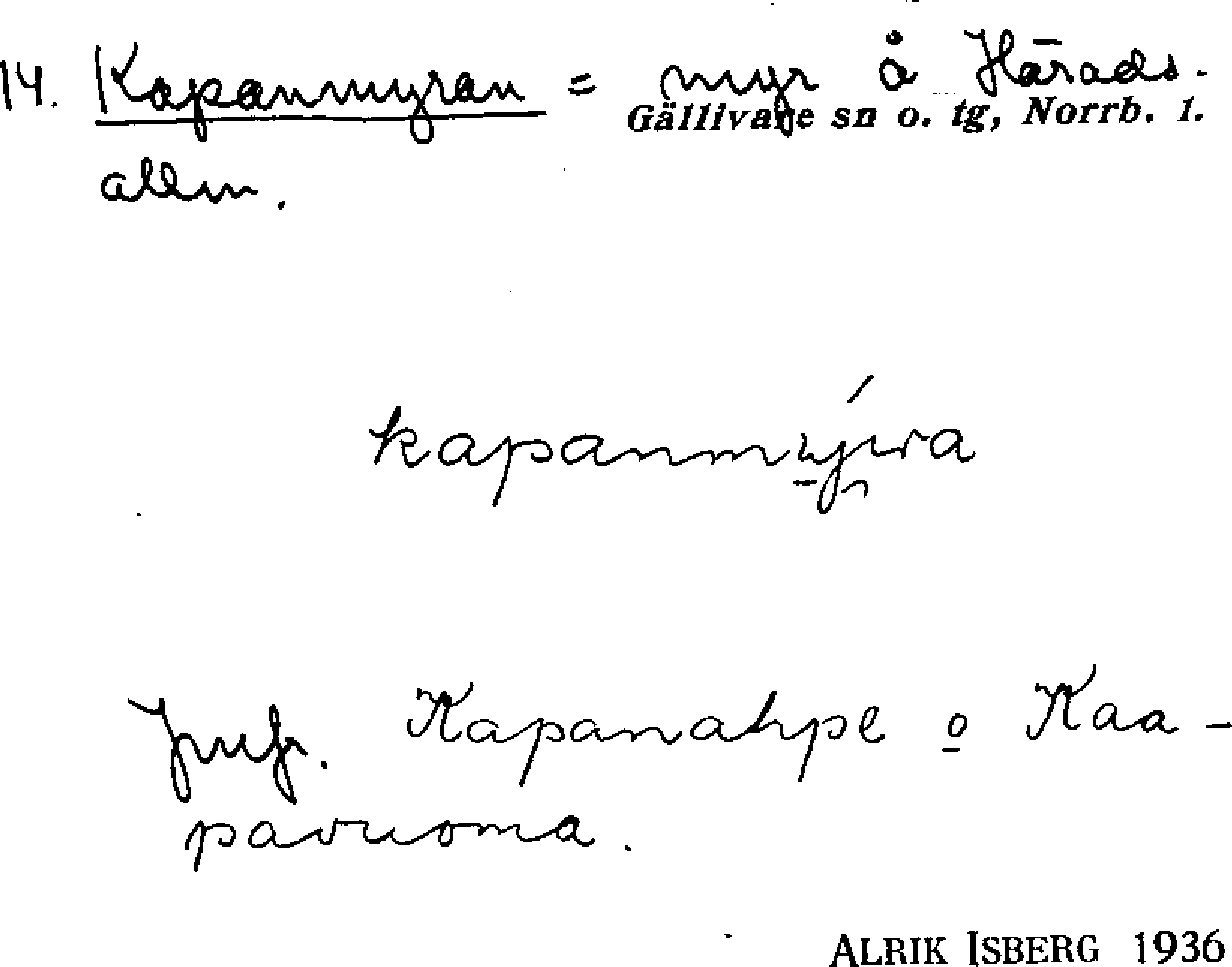 14. Kapanmyran = myr å Härads-
Gällivare sn o. tg, Norrb. l.
allm.
Jmfr. Kapanahpe o Kaa-
pavuoma.
ALRIK ISBERG 1936